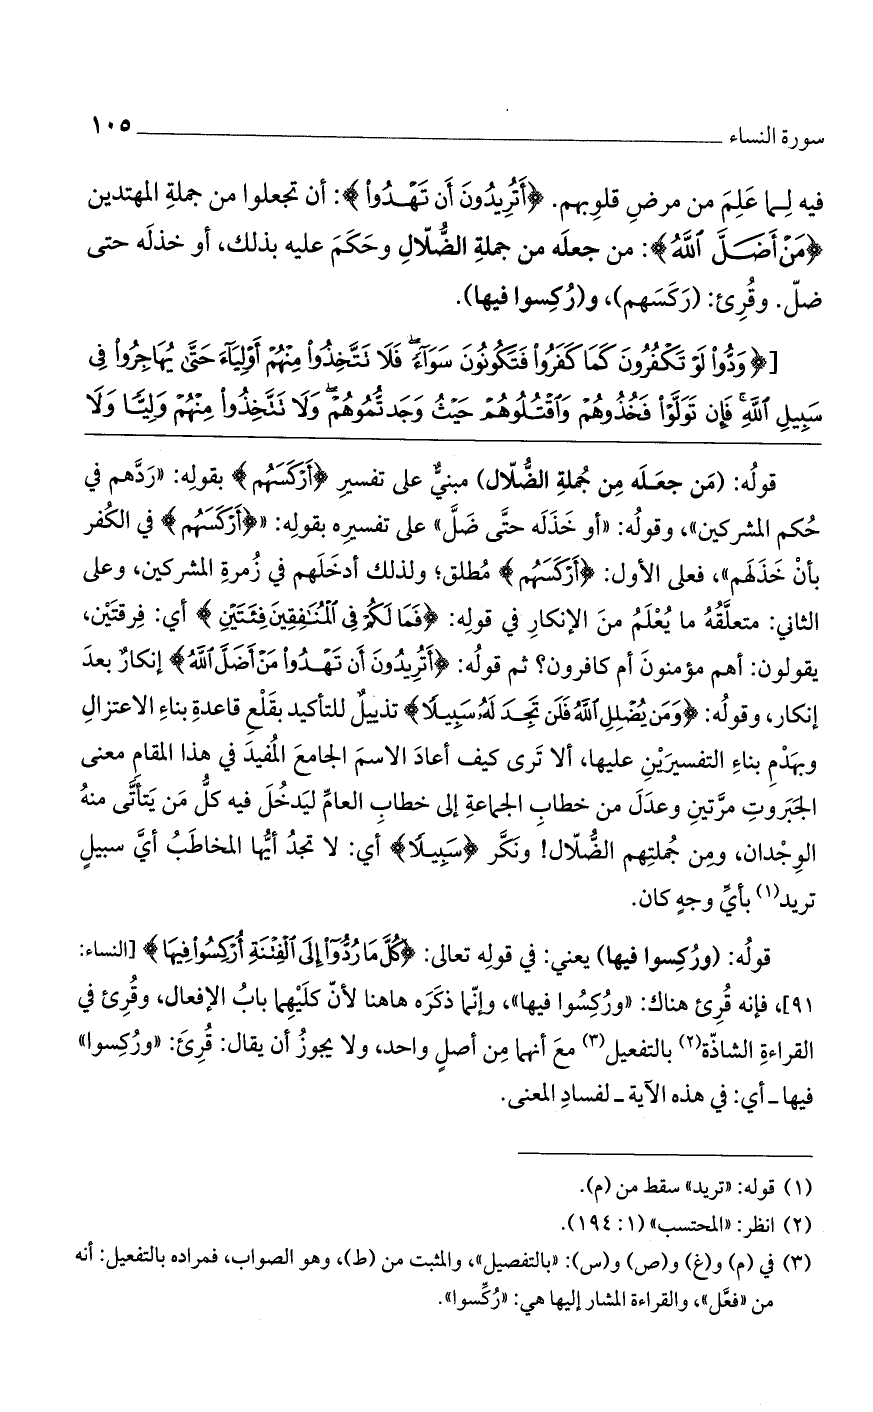 سورة النساء ١٠٥
فيه لِـما عَلِمَ من مرضِ قلوبِهم. ﴿أَتُرِيدُونَ أَن تَهْدُوا۟﴾: أن تجعلوا من جملةِ المهتدين
﴿مَنْ أَضَلَّ ٱللَّهُ﴾: من جعلَه من جملةِ الضُّلّالِ وحَكَمَ عليه بذلك، أو خذلَه حتى
ضلّ. وقُرِئ: (رَكَسَهم)، و(رُكِسوا فيها).
[﴿وَدُّوا۟ لَوْ تَكْفُرُونَ كَمَا كَفَرُوا۟ فَتَكُونُونَ سَوَآءً ۖ فَلَا تَتَّخِذُوا۟ مِنْهُمْ أَوْلِيَآءَ حَتَّىٰ يُهَاجِرُوا۟ فِى
سَبِيلِ ٱللَّهِ ۚ فَإِن تَوَلَّوْا۟ فَخُذُوهُمْ وَٱقْتُلُوهُمْ حَيْثُ وَجَدتُّمُوهُمْ ۖ وَلَا تَتَّخِذُوا۟ مِنْهُمْ وَلِيًّا وَلَا
قولُه: (مَن جعَلَه مِن جُملةِ الضُّلّال) مبنيٌّ على تفسيرِ ﴿أَرْكَسَهُم﴾ بقولِه: «رَدَّهم في
حُكمِ المشركين»، وقولُه: «أو خَذَلَه حتَّى ضَلَّ» على تفسيرِه بقولِه: «﴿أَرْكَسَهُم﴾ في الكُفر
بأنْ خَذَلَهم»، فعلى الأول: ﴿أَرْكَسَهُم﴾ مُطلق؛ ولذلك أدخَلَهم في زُمرةِ المشركين، وعلى
الثاني: متعلَّقُهُ ما يُعْلَمُ منَ الإنكارِ في قولِه: ﴿فَمَا لَكُمْ فِى ٱلْمُنَٰفِقِينَ فِئَتَيْنِ﴾ أي: فِرقتَيْن،
يقولون: أهم مؤمنونَ أم كافرون؟ ثم قولُه: ﴿أَتُرِيدُونَ أَن تَهْدُوا۟ مَنْ أَضَلَّ ٱللَّهُ﴾ إنكارٌ بعدَ
إنكار، وقولُه: ﴿وَمَن يُضْلِلِ ٱللَّهُ فَلَن تَجِدَ لَهُۥ سَبِيلًا﴾ تذييلٌ للتأكيد بقَلْعِ قاعدةِ بناءِ الاعتزالِ
وبهَدْمِ بناءِ التفسيرَيْنِ عليها، ألا تَرى كيف أعادَ الاسمَ الجامعَ المُفيدَ في هذا المقامِ معنى
الجَبَروتِ مرَّتينِ وعدَلَ من خطابِ الجماعةِ إلى خطابِ العامِّ ليَدخُلَ فيه كلُّ مَن يَتأتَّى منهُ
الوِجْدان، ومِن جُملتِهم الضُّلّال! ونَكَّر ﴿سَبِيلًا﴾ أي: لا تجدُ أيُّها المخاطَبُ أيَّ سبيلٍ
تريد(١) بأيِّ وجهٍ كان.
قولُه: (ورُكِسوا فيها) يعني: في قولِه تعالى: ﴿كُلَّ مَا رُدُّوٓا۟ إِلَى ٱلْفِتْنَةِ أُرْكِسُوا۟ فِيهَا﴾ [النساء:
٩١]، فإنه قُرِئ هناك: «ورُكِسُوا فيها»، وإنّما ذكَرَه هاهنا لأنّ كلَيْهِما بابُ الإفعال، وقُرِئ في
القراءةِ الشاذّة(٢) بالتفعيل(٣) معَ أنهما مِن أصلٍ واحد، ولا يجوزُ أن يقال: قُرِئَ: «ورُكِسوا»
فيها ـ أي: في هذه الآية ـ لفسادِ المعنى.
(١) قوله: «تريد» سقط من (م).
(٢) انظر: «المحتسب» (١: ١٩٤).
(٣) في (م) و(غ) و(ص) و(س): «بالتفصيل»، والمثبت من (ط)، وهو الصواب، فمراده بالتفعيل: أنه
من «فعَّل»، والقراءة المشار إليها هي: «رُكِّسوا».